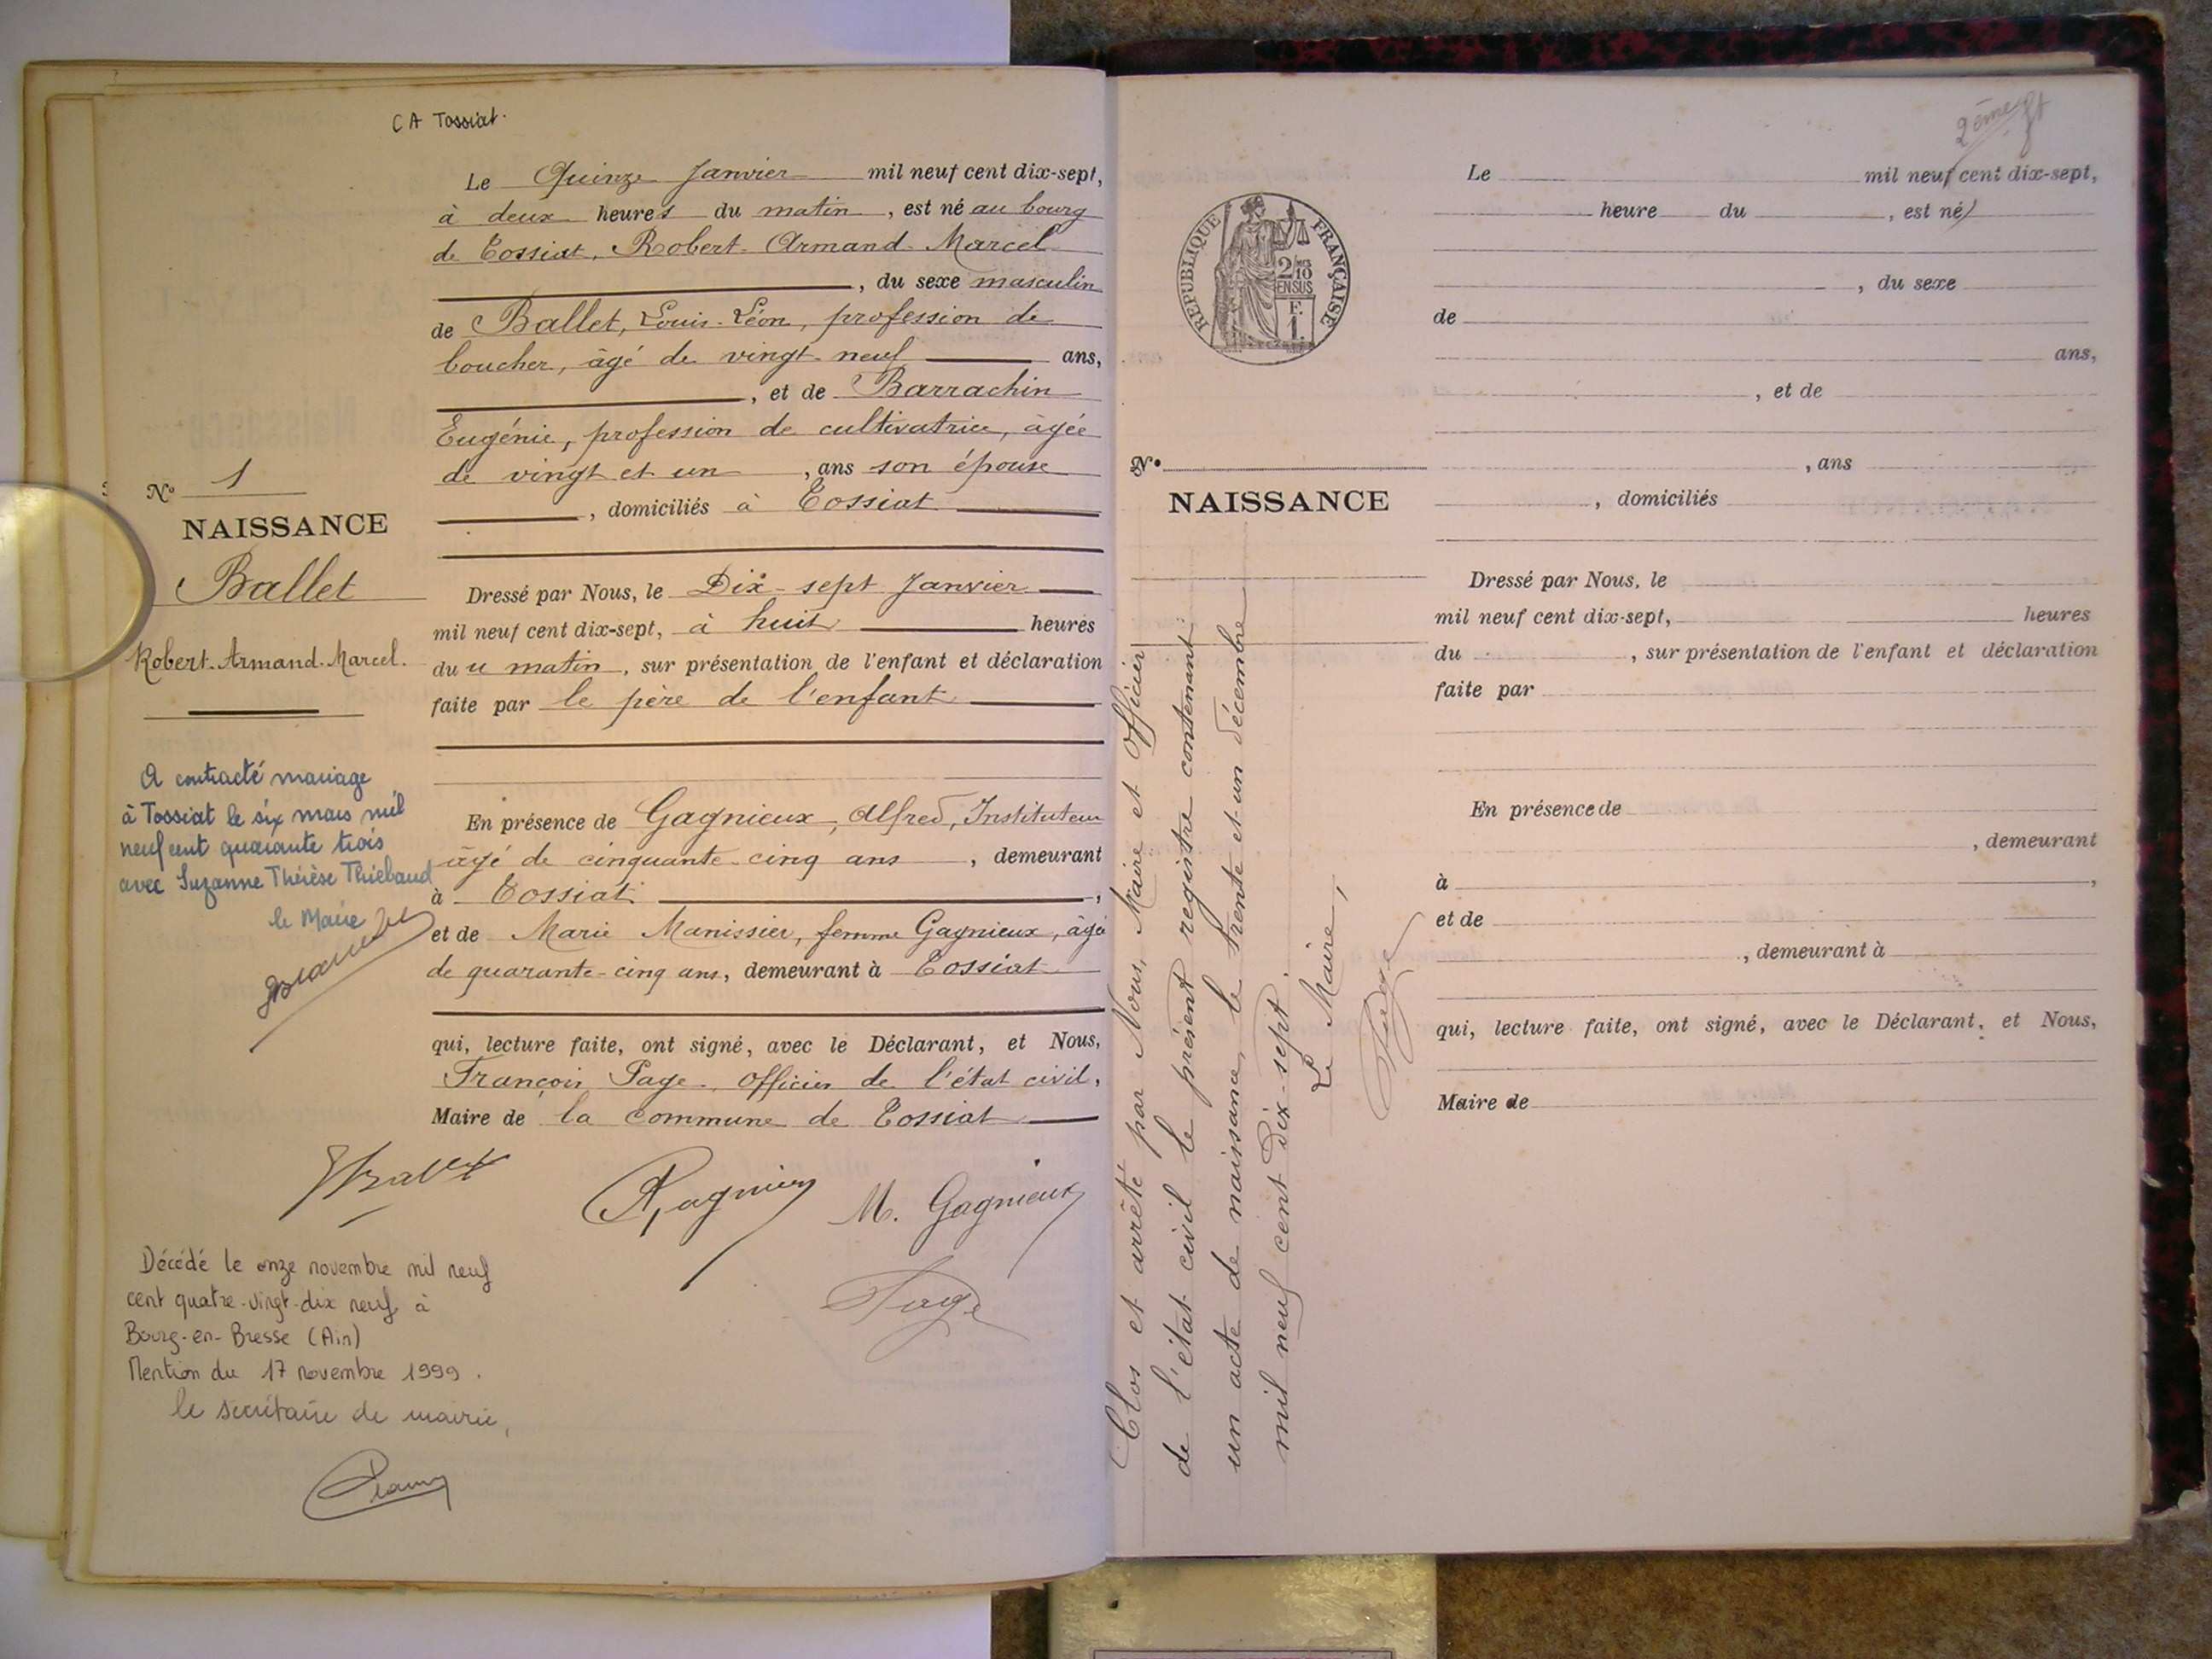 CA Tossiat.
Le Quinze Janvier mil neuf cent dix-sept,
à deux heures du matin, est né au bourg
de Tossiat, Robert Armand Marcel
, du sexe masculin
de Ballet, Louis-Léon, profession de
boucher, âgé de vingt-neuf ans,
, et de Barrachin
Eugénie, profession de cultivatrice, âgée
de vingt et un, ans son épouse
, domiciliés à Tossiat
Dressé par Nous, le Dix-sept Janvier
mil neuf cent dix-sept, à huit heures
du u matin, sur présentation de l'enfant et déclaration
faite par le père de l'enfant
En présence de Gagnieux, Alfred, Instituteur
âgé de cinquante-cinq ans, demeurant
à Tossiat,
et de Marie Manissier, femme Gagnieux, âgée
de quarante-cinq ans, demeurant à Tossiat
qui, lecture faite, ont signé, avec le Déclarant, et Nous,
François Page, officier de l'état civil,
Maire de la commune de Tossiat
M. Gagnieux
Page
N° 1
NAISSANCE
Ballet
Robert-Armand-Marcel.
A contracté mariage
à Tossiat le six mars mil
neuf cent quarante trois
avec Suzanne Thérèse Thiebaud
le Maire
Décédé le onze novembre mil neuf
cent quatre-vingt-dix neuf à
Bourg-en-Bresse (Ain)
Mention du 17 novembre 1999.
le secrétaire de mairie,
2ème ft
REPUBLIQUE FRANÇAISE
2/10
EN SUS
F.
1.
N°
NAISSANCE
Clos et arrêté par Nous, Maire et Officier
de l'état civil le présent registre contenant
un acte de naissance, le trente-et-un décembre
mil neuf cent dix-sept.
Le Maire,
Page
Le mil neuf cent dix-sept,
heure du, est né
, du sexe
de
ans,
, et de
, ans
, domiciliés
Dressé par Nous, le
mil neuf cent dix-sept, heures
du, sur présentation de l'enfant et déclaration
faite par
En présence de
, demeurant
à,
et de
, demeurant à
qui, lecture faite, ont signé, avec le Déclarant, et Nous,
Maire de